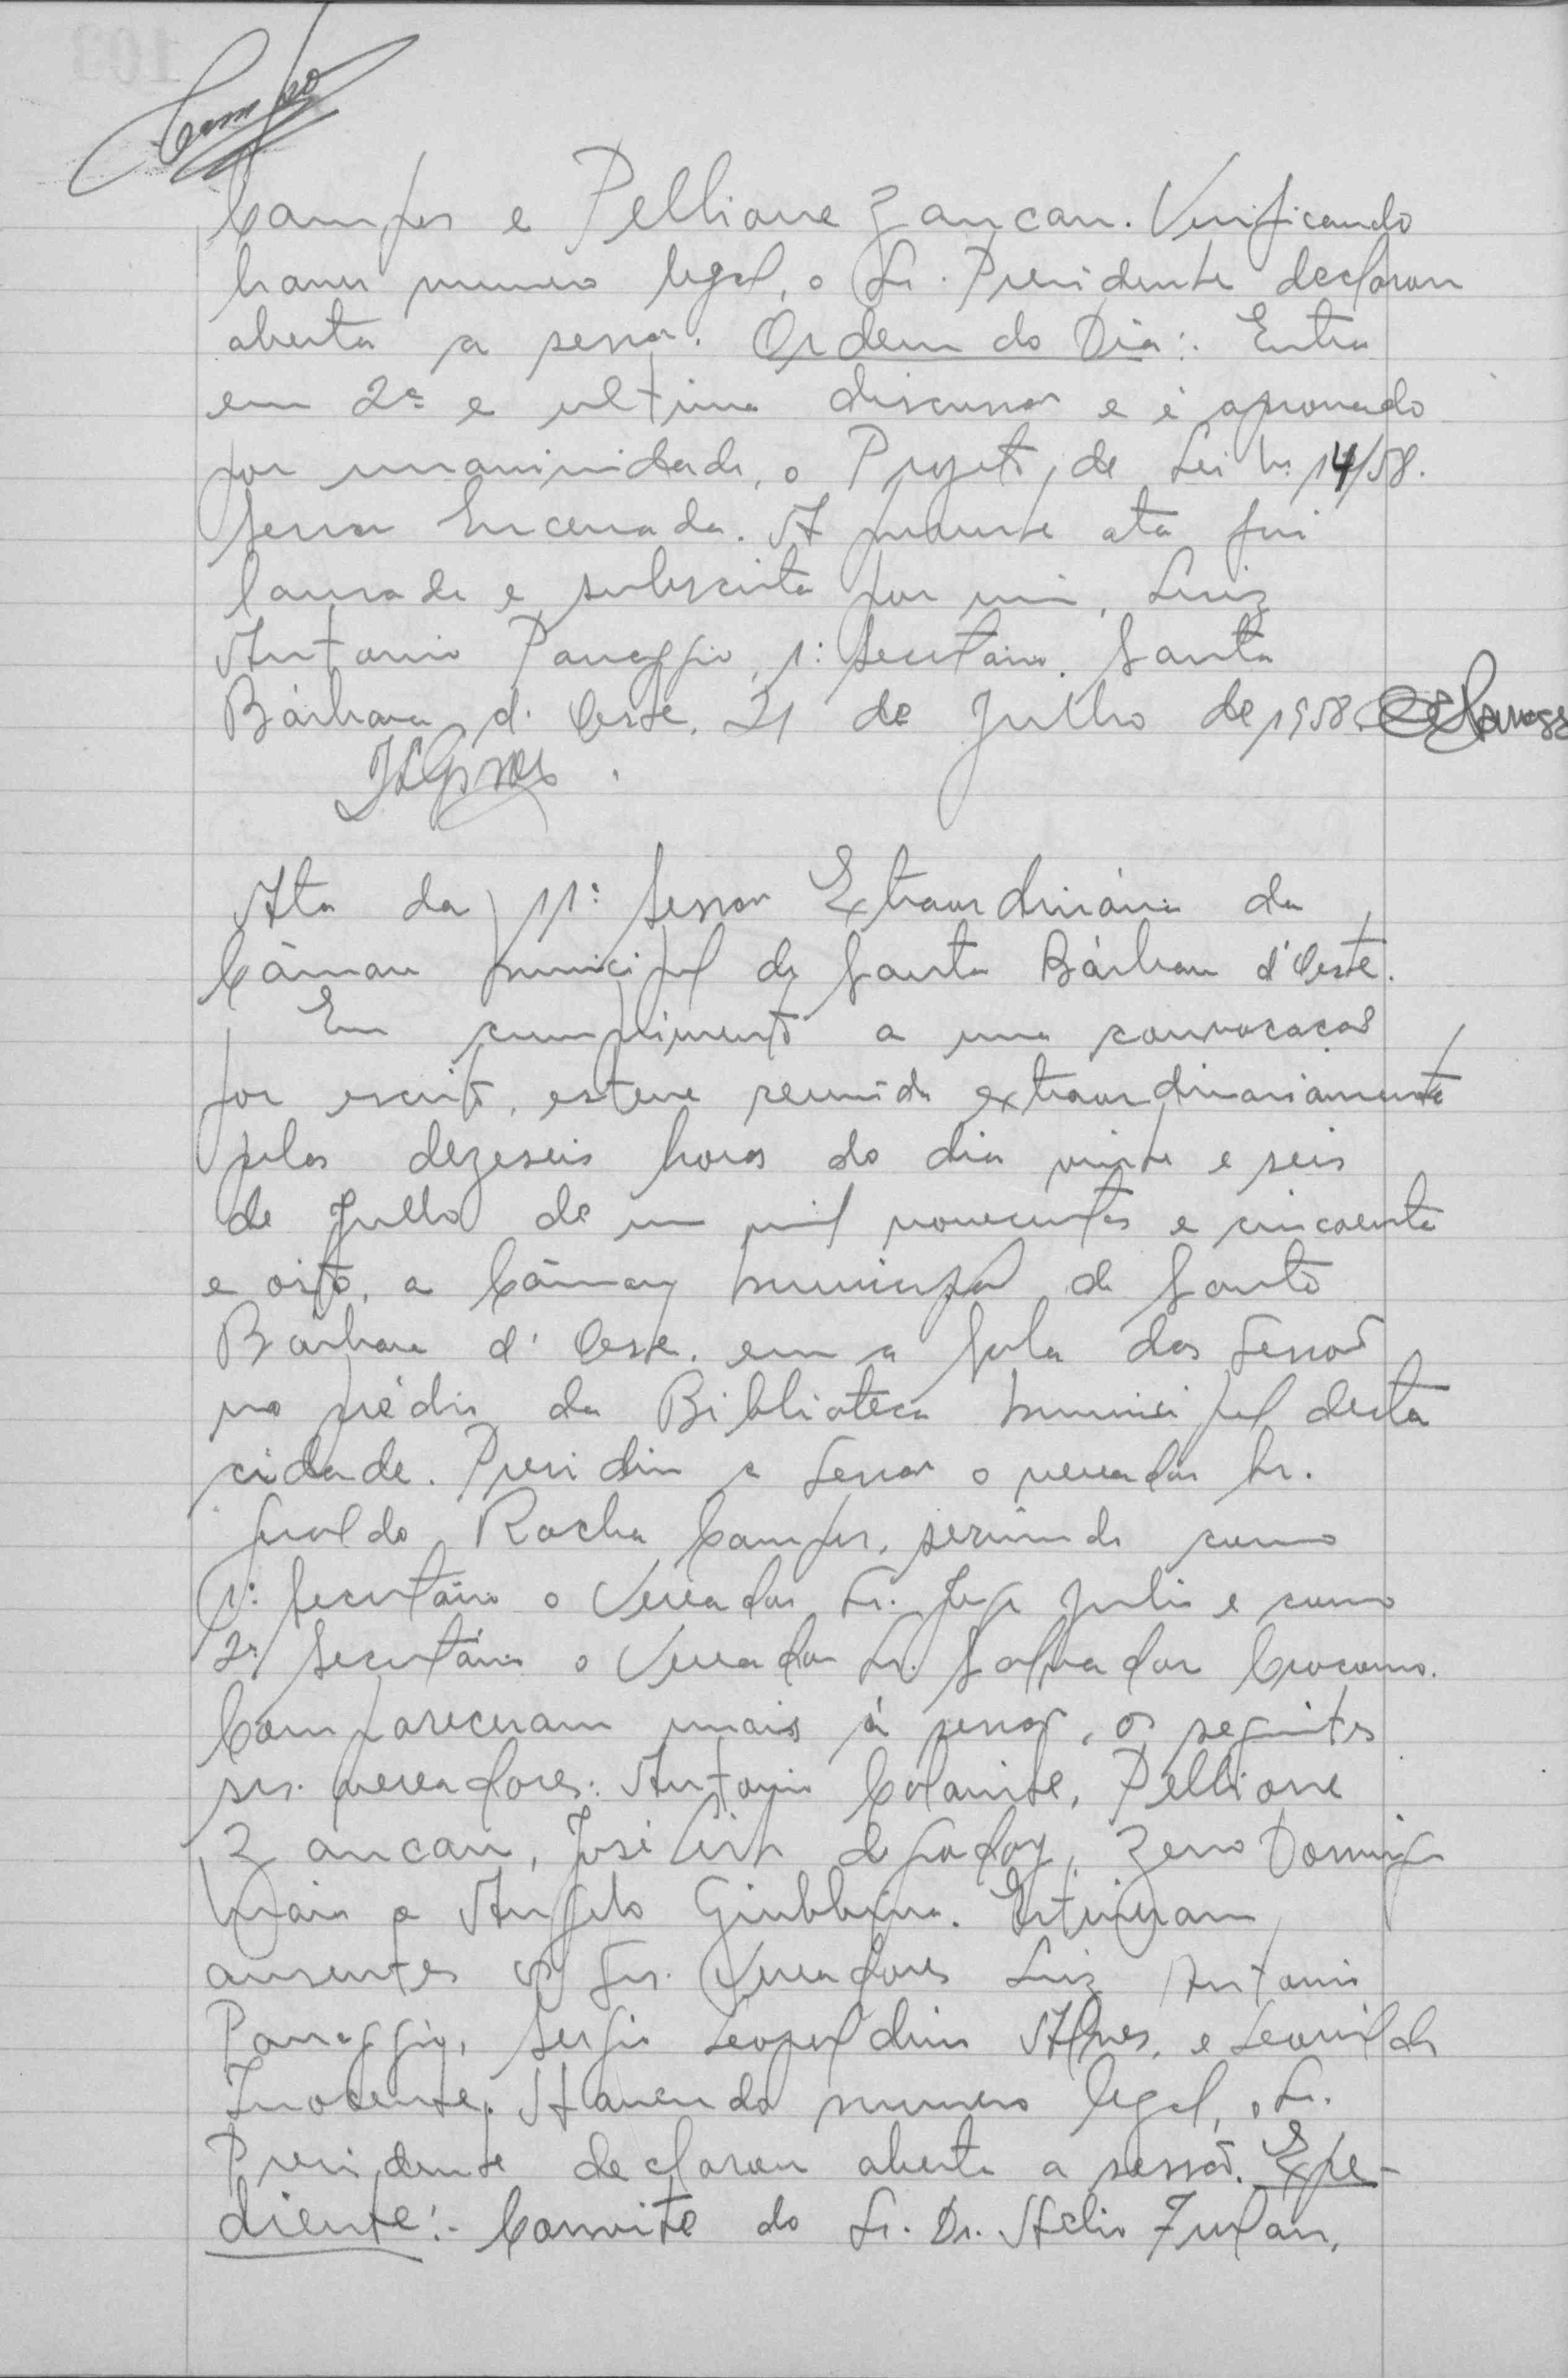 Campos
Campos e Pellione Zancan. Verificando
haver numero legal, o Sr. Presidente declarou
aberta a sessão. Ordem do Dia:. Entra
em 2ª e ultima discussão e é aprovado
por unanimidade, o Projeto de Lei nº 14/58.
Sessão Encerrada. A presente ata foi
lavrada e subscrita por mim, Luiz
Antonio Panaggio, 1º Secretário. Santa
Bárbara d'Oeste, 21 de Julho de 1958.
Ata da 11ª Sessão Extraordinária da
Câmara Municipal de Santa Bárbara d'Oeste.
Em cumprimento a uma convocação
por escrito, esteve reunida extraordinariamente
pelas dezeseis horas do dia vinte e seis
de Julho de um mil novecentos e cincoenta
e oito, a Câmara Municipal de Santa
Bárbara d'Oeste, em a Sala das Sessões
no prédio da Biblioteca Municipal desta
cidade. Presidiu a Sessão o vereador Sr.
Geraldo Rocha Campos, servindo como
1º Secretário o Vereador Sr. Julio e como
2º Secretário o Vereador Sr. Salvador
Compareceram mais á sessão, os seguintes
srs. vereadores: Antonio Pellione
Zancan, José de Godoy, Zeno Domingos
Maia e Angelo Giubbina. Estiveram
ausentes os Srs. Vereadores Luiz Antonio
Panaggio, Sergio Leopoldino Alves, e Leonildo
Inocente. Havendo numero legal, o Sr.
Presidente declarou aberta a sessão. Expe-
diente:- Convite do Sr. Dr. Helio Furlan,